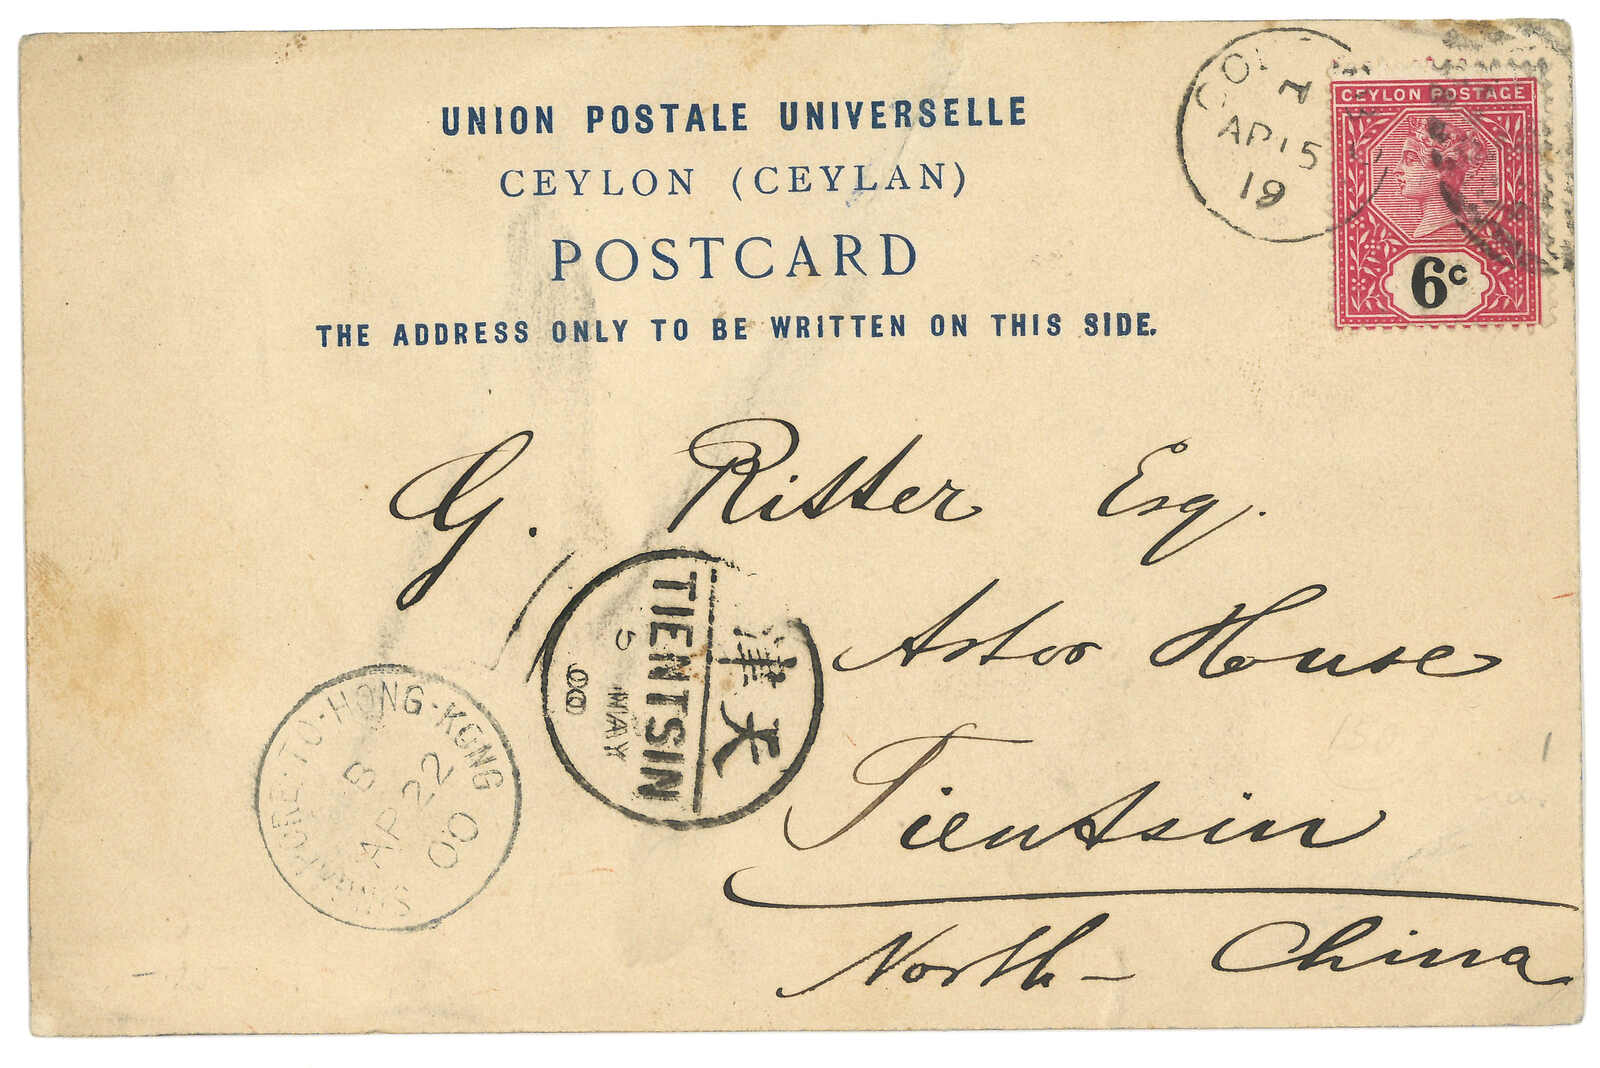 UNION POSTALE UNIVERSELLE
CEYLON (CEYLAN)
POSTCARD
THE ADDRESS ONLY TO BE WRITTEN ON THIS SIDE.
AP 15
19
CEYLON POSTAGE
6c
G. Ritter Esq.
Astor House
Tientsin
North-China
天津
TIENTSIN
5 MAY
00
SINGAPORE-TO-HONG-KONG
B
AP 22
00